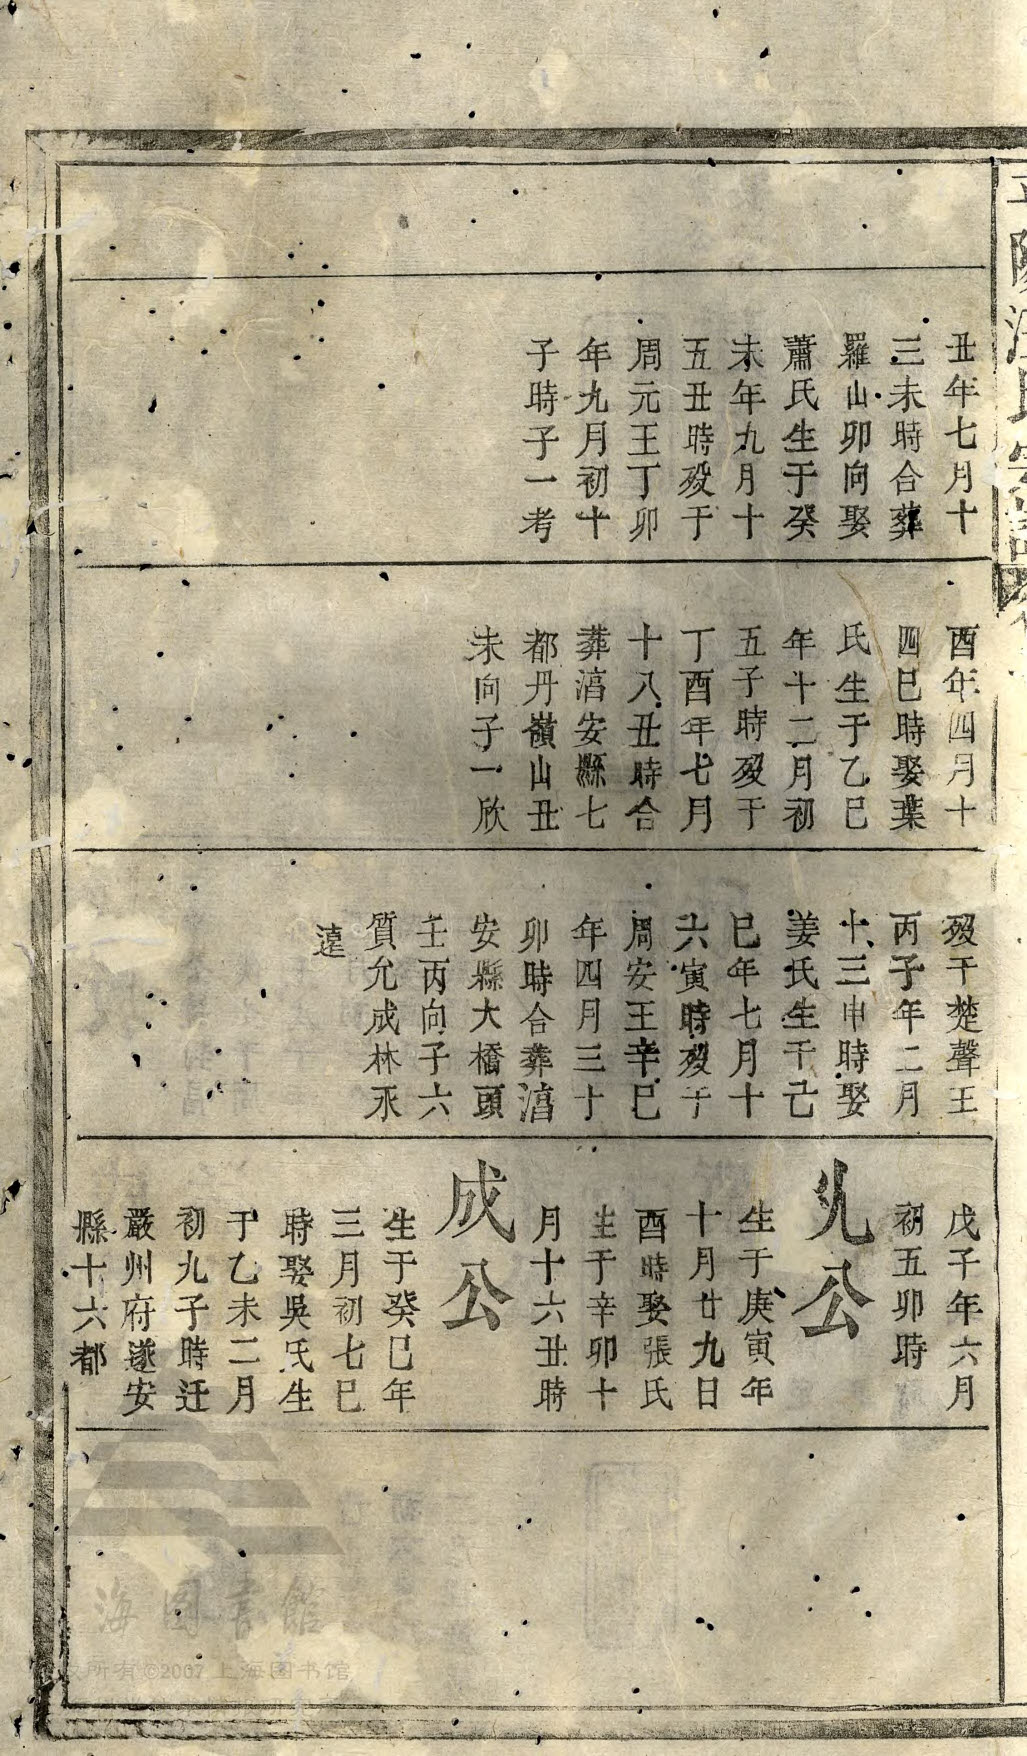 平陽汪氏宗譜
丑年七月十
三未時合葬
羅山卯向娶
蕭氏生于癸
未年九月十
五丑時歿于
周元王丁卯
年九月初十
子時子一考
酉年四月十
四巳時娶葉
氏生于乙巳
年十二月初
五子時歿于
丁酉年七月
十八丑時合
葬淯安縣七
都丹嶺山丑
未向子一欣
歿于楚聲王
丙子年二月
十三申時娶
姜氏生于己
巳年七月十
六寅時歿于
周安王辛巳
年四月三十
卯時合葬淯
安縣大橋頭
壬丙向子六
質允成林永
遠
戊子年六月
初五卯時
允公
生于庚寅年
十月廿九日
酉時娶張氏
生于辛卯十
月十六丑時
成公
生于癸巳年
三月初七巳
時娶吳氏生
于乙未二月
初九子時迁
嚴州府遂安
縣十六都
海图書館
权所有©2007 上海图书馆